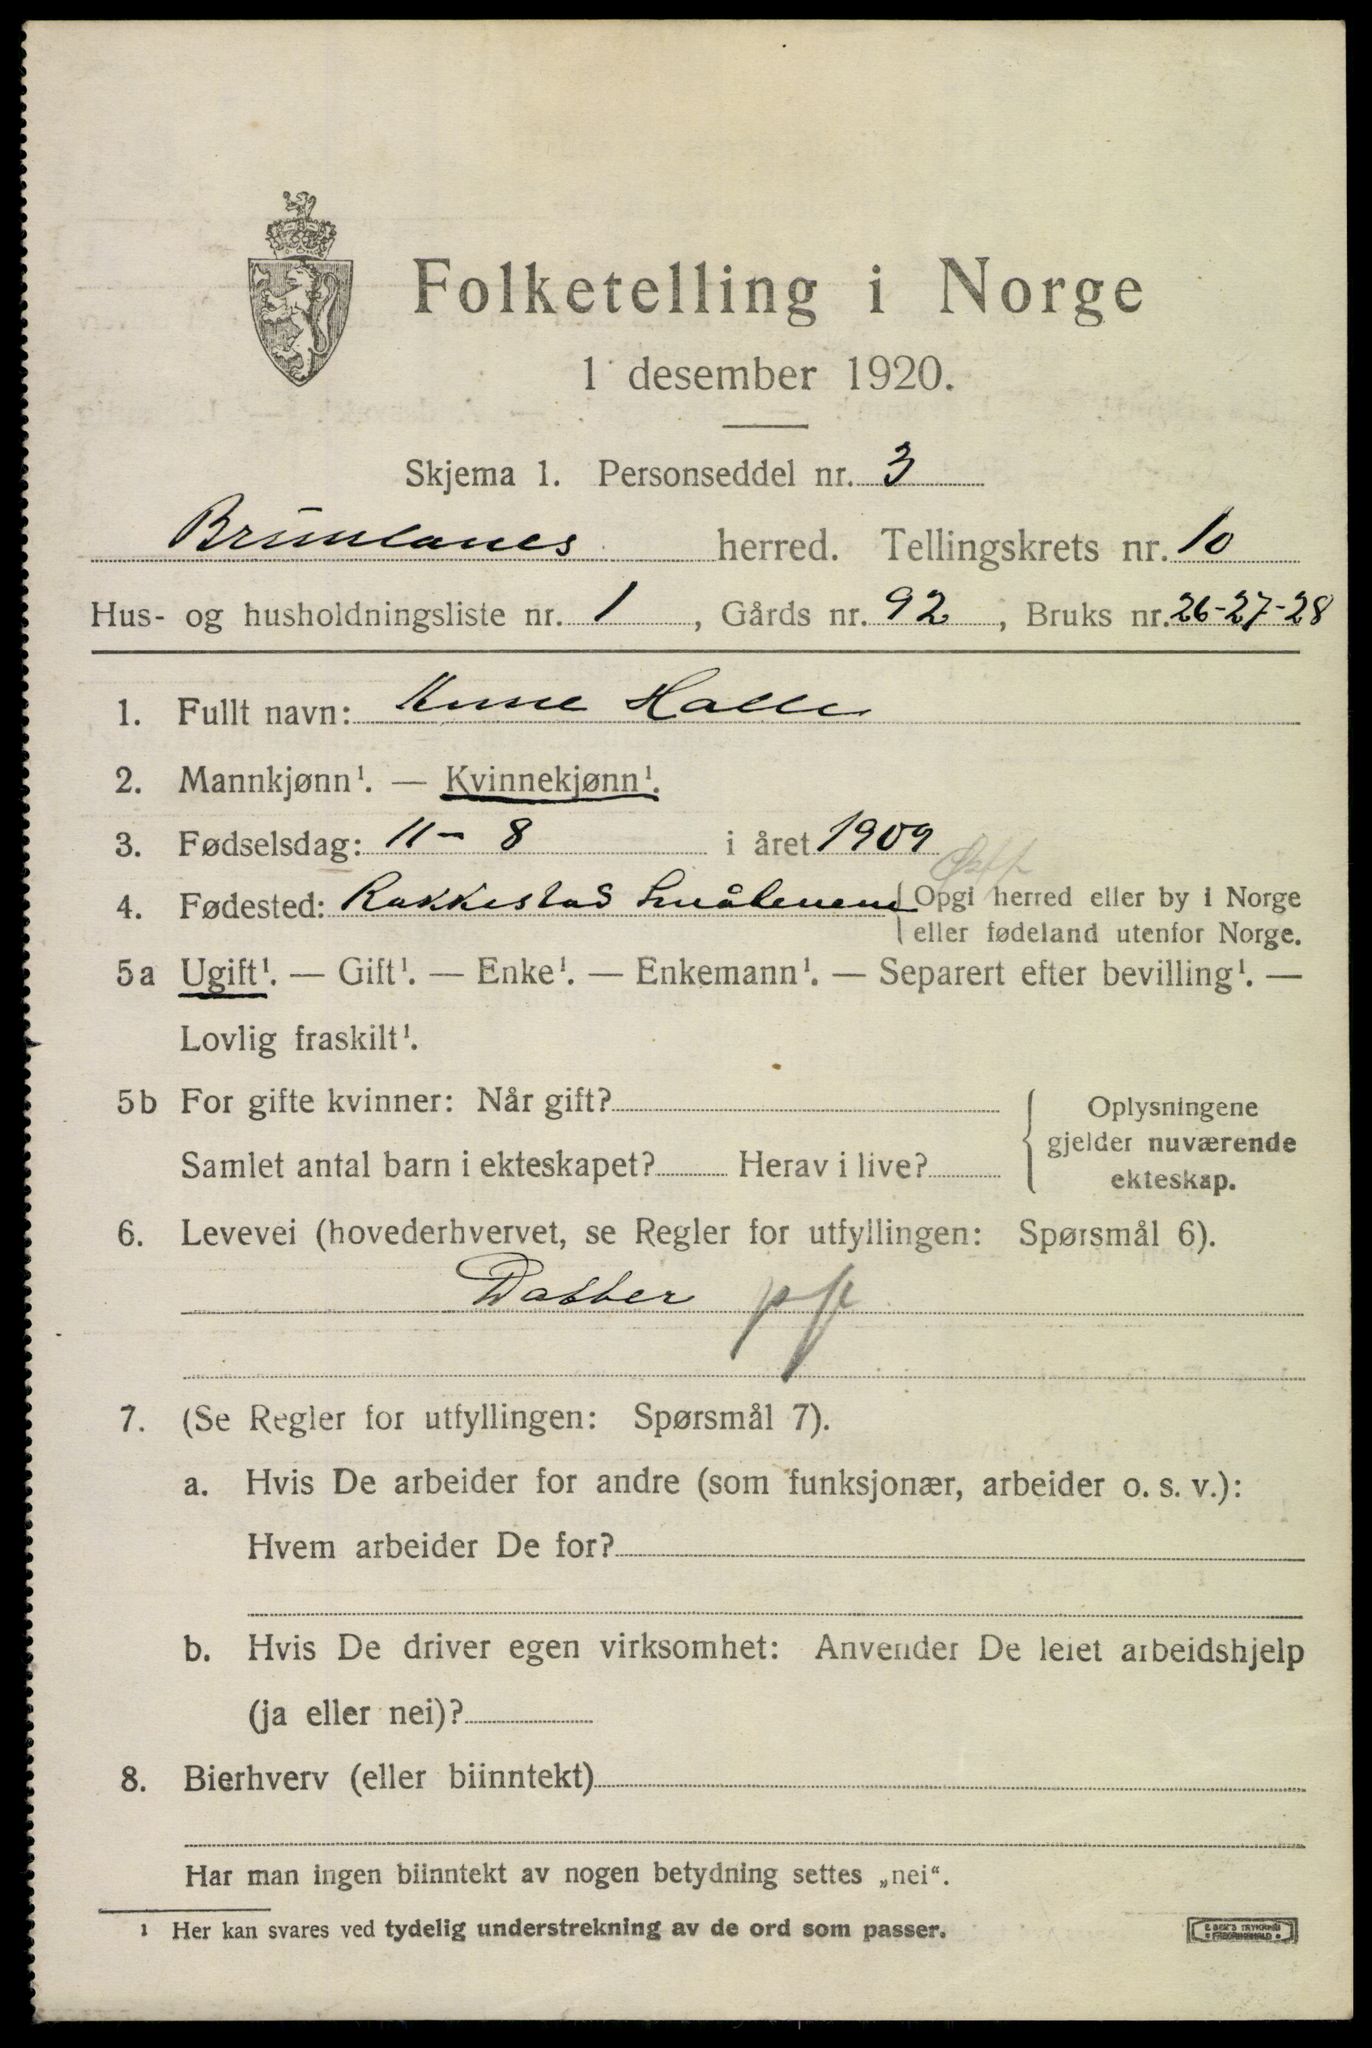 Folketelling i Norge
1 desember 1920.
Skjema 1. Personseddel nr. 3
Brunlanes herred. Tellingskrets nr. 10
Hus- og husholdningsliste nr. 1, Gårds nr. 92, Bruks nr. 26-27-28
1. Fullt navn: Halle
2. Mannkjønn¹. — Kvinnekjønn¹.
3. Fødselsdag: 11 - 8 i året 1909
4. Fødested: Rakkestad Smålenene Opgi herred eller by i Norge
eller fødeland utenfor Norge.
5a Ugift¹. — Gift¹. — Enke¹. — Enkemann¹. — Separert efter bevilling¹. —
Lovlig fraskilt¹.
5b For gifte kvinner: Når gift?
Samlet antal barn i ekteskapet? Herav i live?
Oplysningene
gjelder nuværende
ekteskap.
6. Levevei (hovederhvervet, se Regler for utfyllingen: Spørsmål 6).
Datter
7. (Se Regler for utfyllingen: Spørsmål 7).
a. Hvis De arbeider for andre (som funksjonær, arbeider o. s. v.):
Hvem arbeider De for?
b. Hvis De driver egen virksomhet: Anvender De leiet arbeidshjelp
(ja eller nei)?
8. Bierhverv (eller biinntekt)
Har man ingen biinntekt av nogen betydning settes „nei“.
¹ Her kan svares ved tydelig understrekning av de ord som passer.